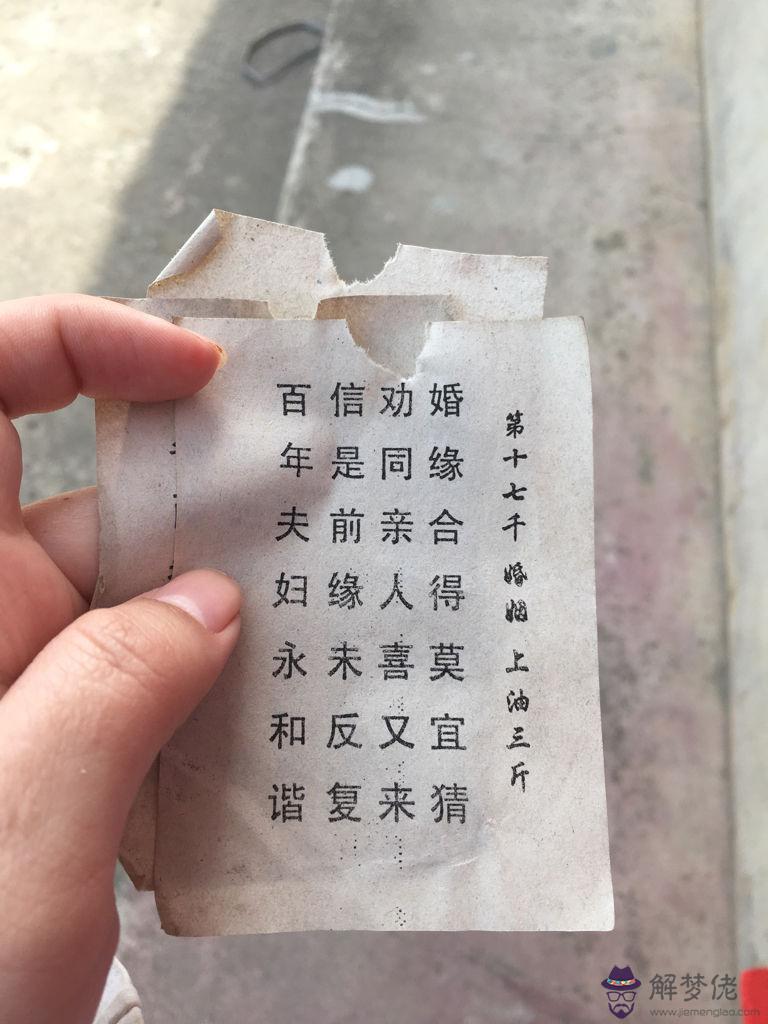 第十七千 婚姻 上油三斤
婚缘合得莫宜猜
劝同亲人喜又来
信是前缘未反复
百年夫妇永和谐
解梦佬
www.jiemenglao.com